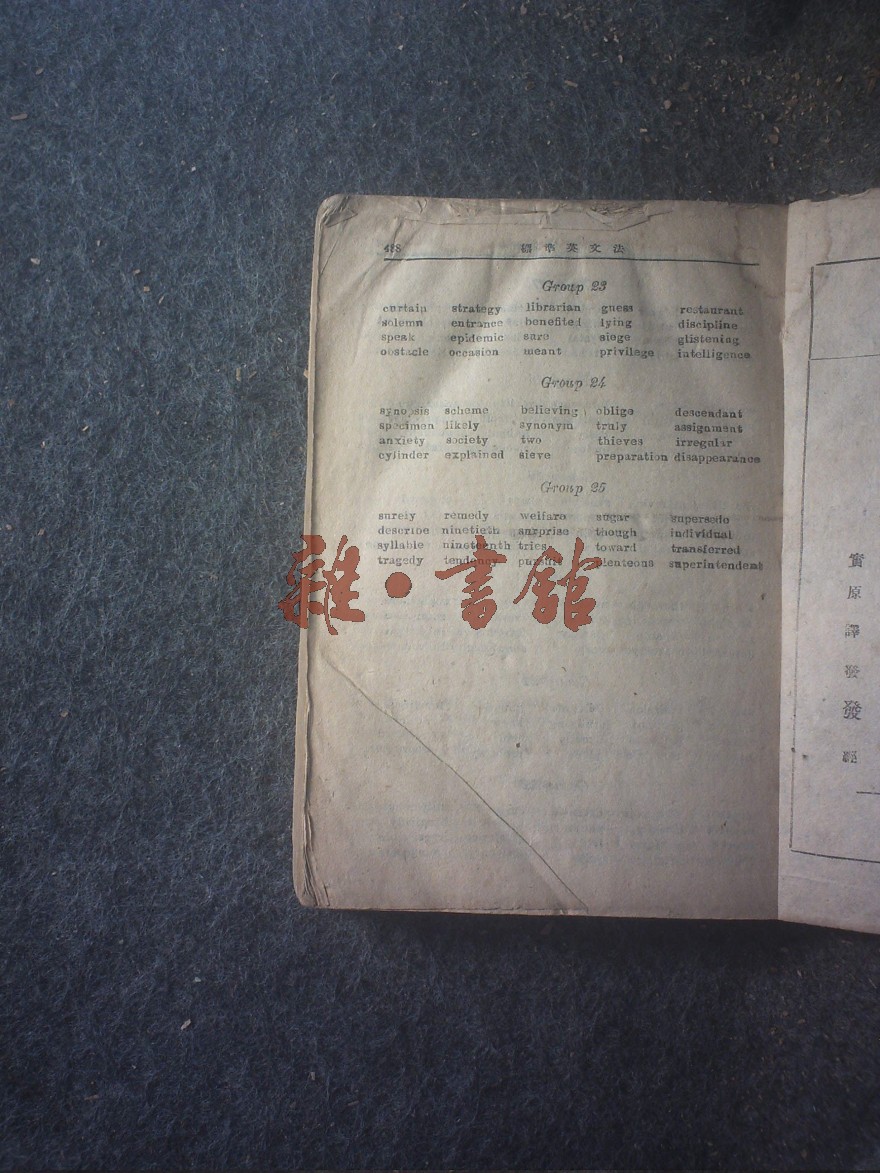 488 標準英文法
Group 23
curtain strategy librarian guess restaurant
solemn entrance benefited lying discipline
speak epidemic sure siege glistening
obstacle occasion meant privilege intelligence
Group 24
synopsis scheme believing oblige descendant
specimen likely synonym truly assignment
anxiety society two thieves irregular
cylinder explained sieve preparation disappearance
Group 25
surely remedy welfare sugar supersede
describe ninetieth surprise though individual
syllable nineteenth tries toward transferred
tragedy tendency pursuit plenteous superintendent
雜·書館
實
原
譯
發
發